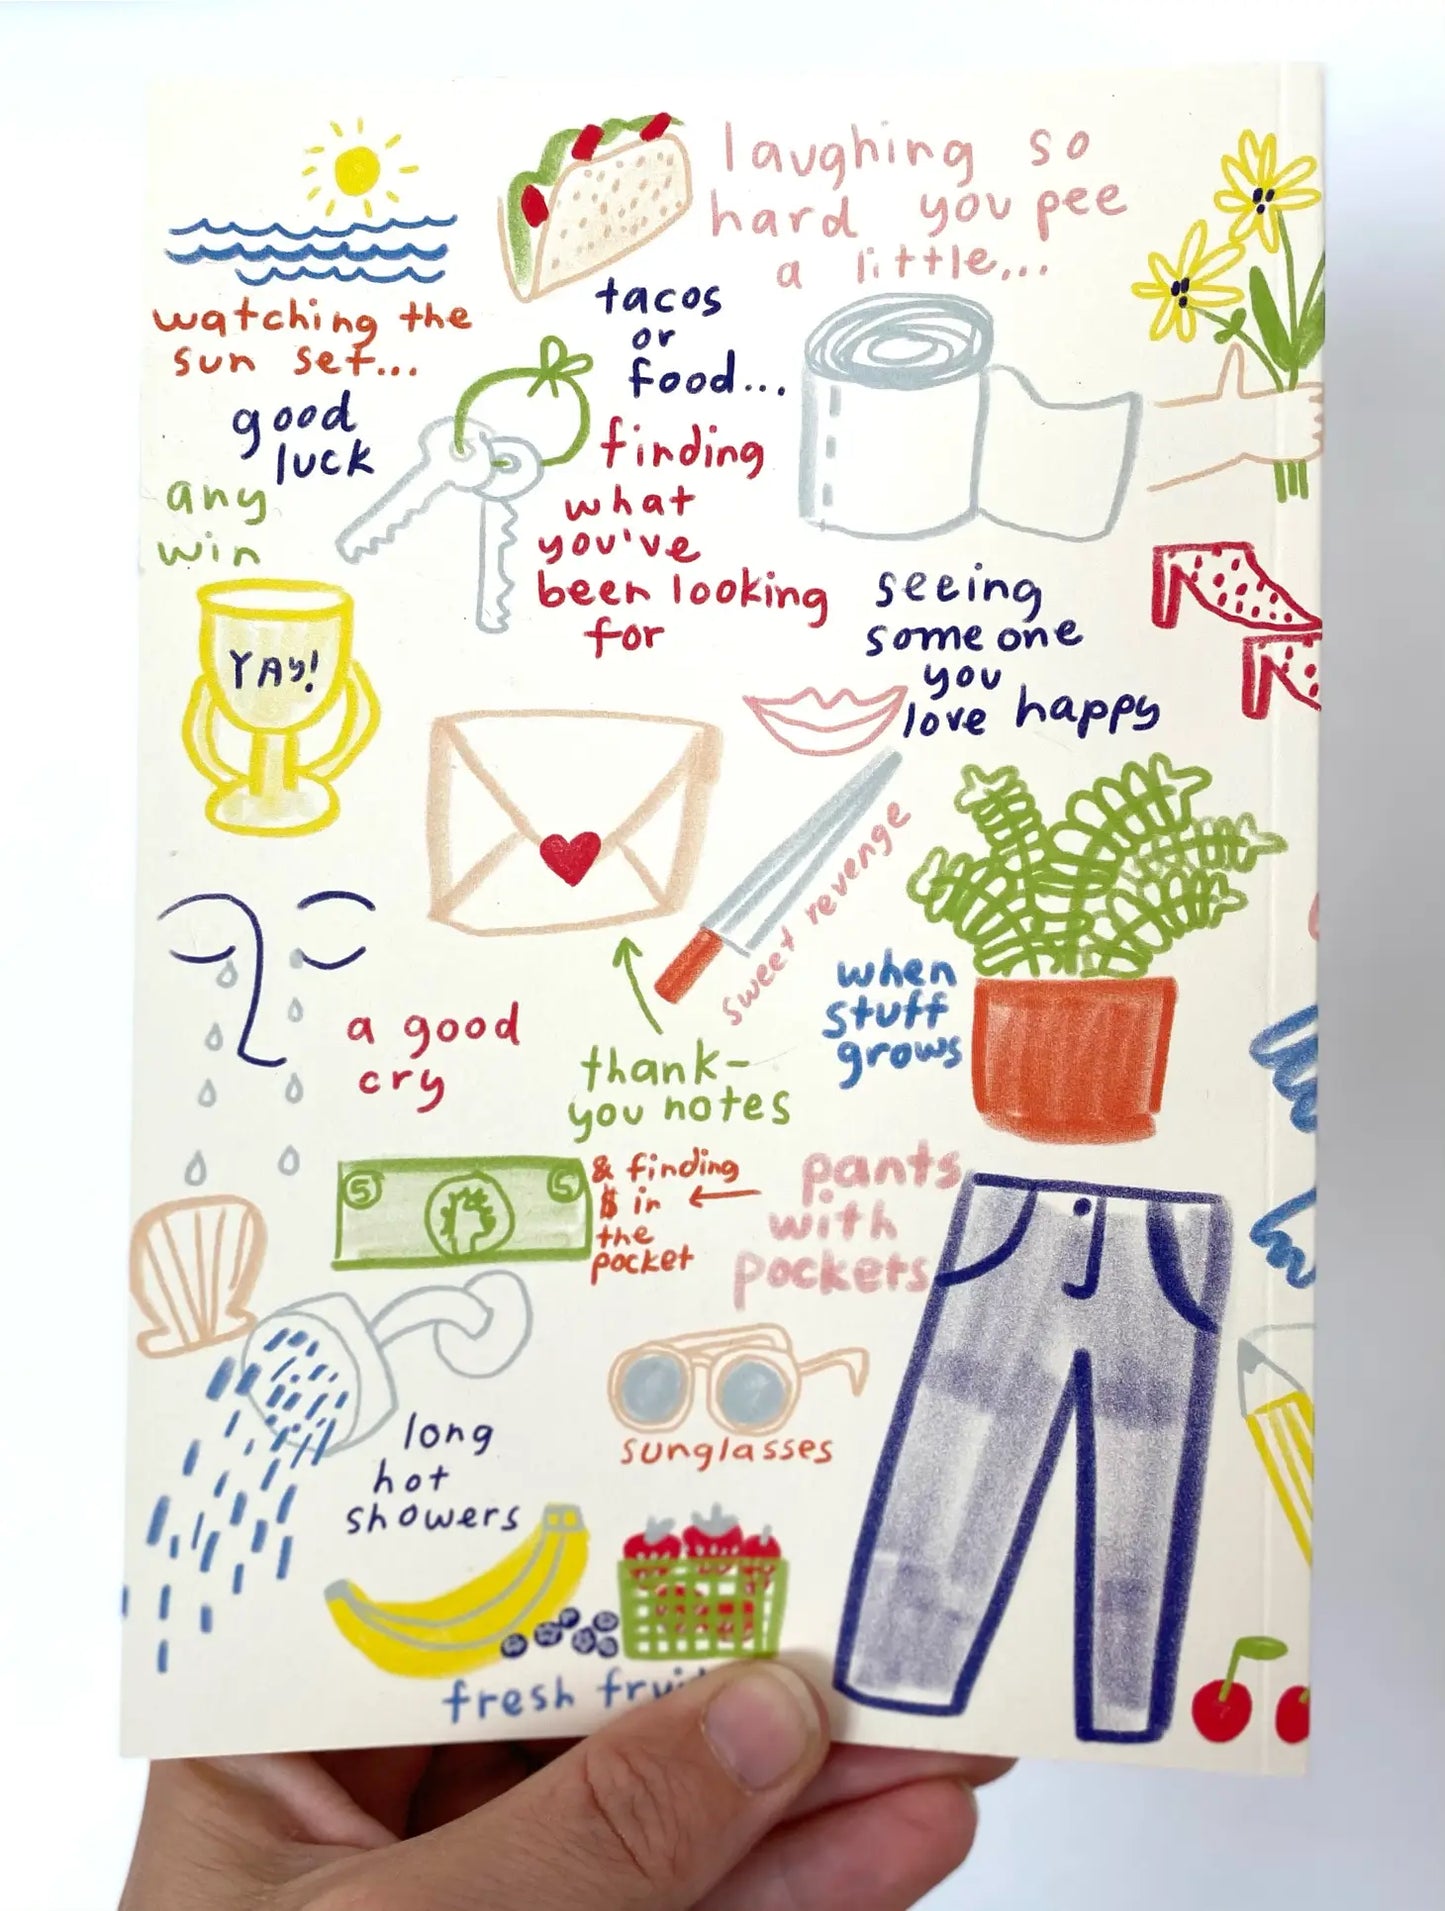 watching the
sun set...
tacos
or
food...
laughing so
hard you pee
a little...
good
luck
any
win
YAY!
finding
what
you've
been looking
for
seeing
someone
you
love happy
sweet revenge
a good
cry
thank-
you notes
when
stuff
grows
5 5
& finding
$ in
the
pocket
pants
with
pockets
long
hot
showers
sunglasses
fresh